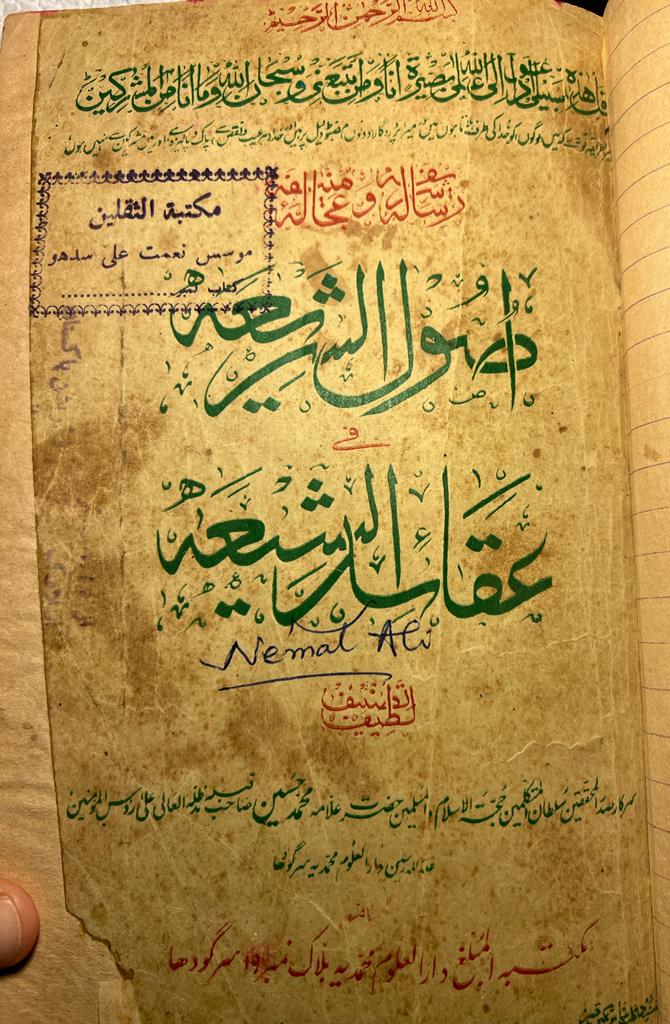 بسم الله الرحمن الرحيم
قل هذه سبيلي ادعوا الى الله على بصيرة انا ومن اتبعني وسبحان الله وما انا من المشركين
رسالہ شریفہ و عجالہ منیفہ
مكتبة الثقلين
موسس نعمت علی سدھو
کتاب نمبر
اصول الشریعہ
فی
عقائد الشیعہ
Nemat Ali
از تصنیف لطیف
سرکار صدر المحققین سلطان المتکلمین حجۃ الاسلام والمسلمین حضرت علامہ محمد حسین صاحب قبلہ مدظلہ العالی علی رؤس المومنین
دارالعلوم محمدیہ سرگودھا
ناشر
مکتبہ المبلغ دارالعلوم محمدیہ بلاک نمبر ۱۹ سرگودھا